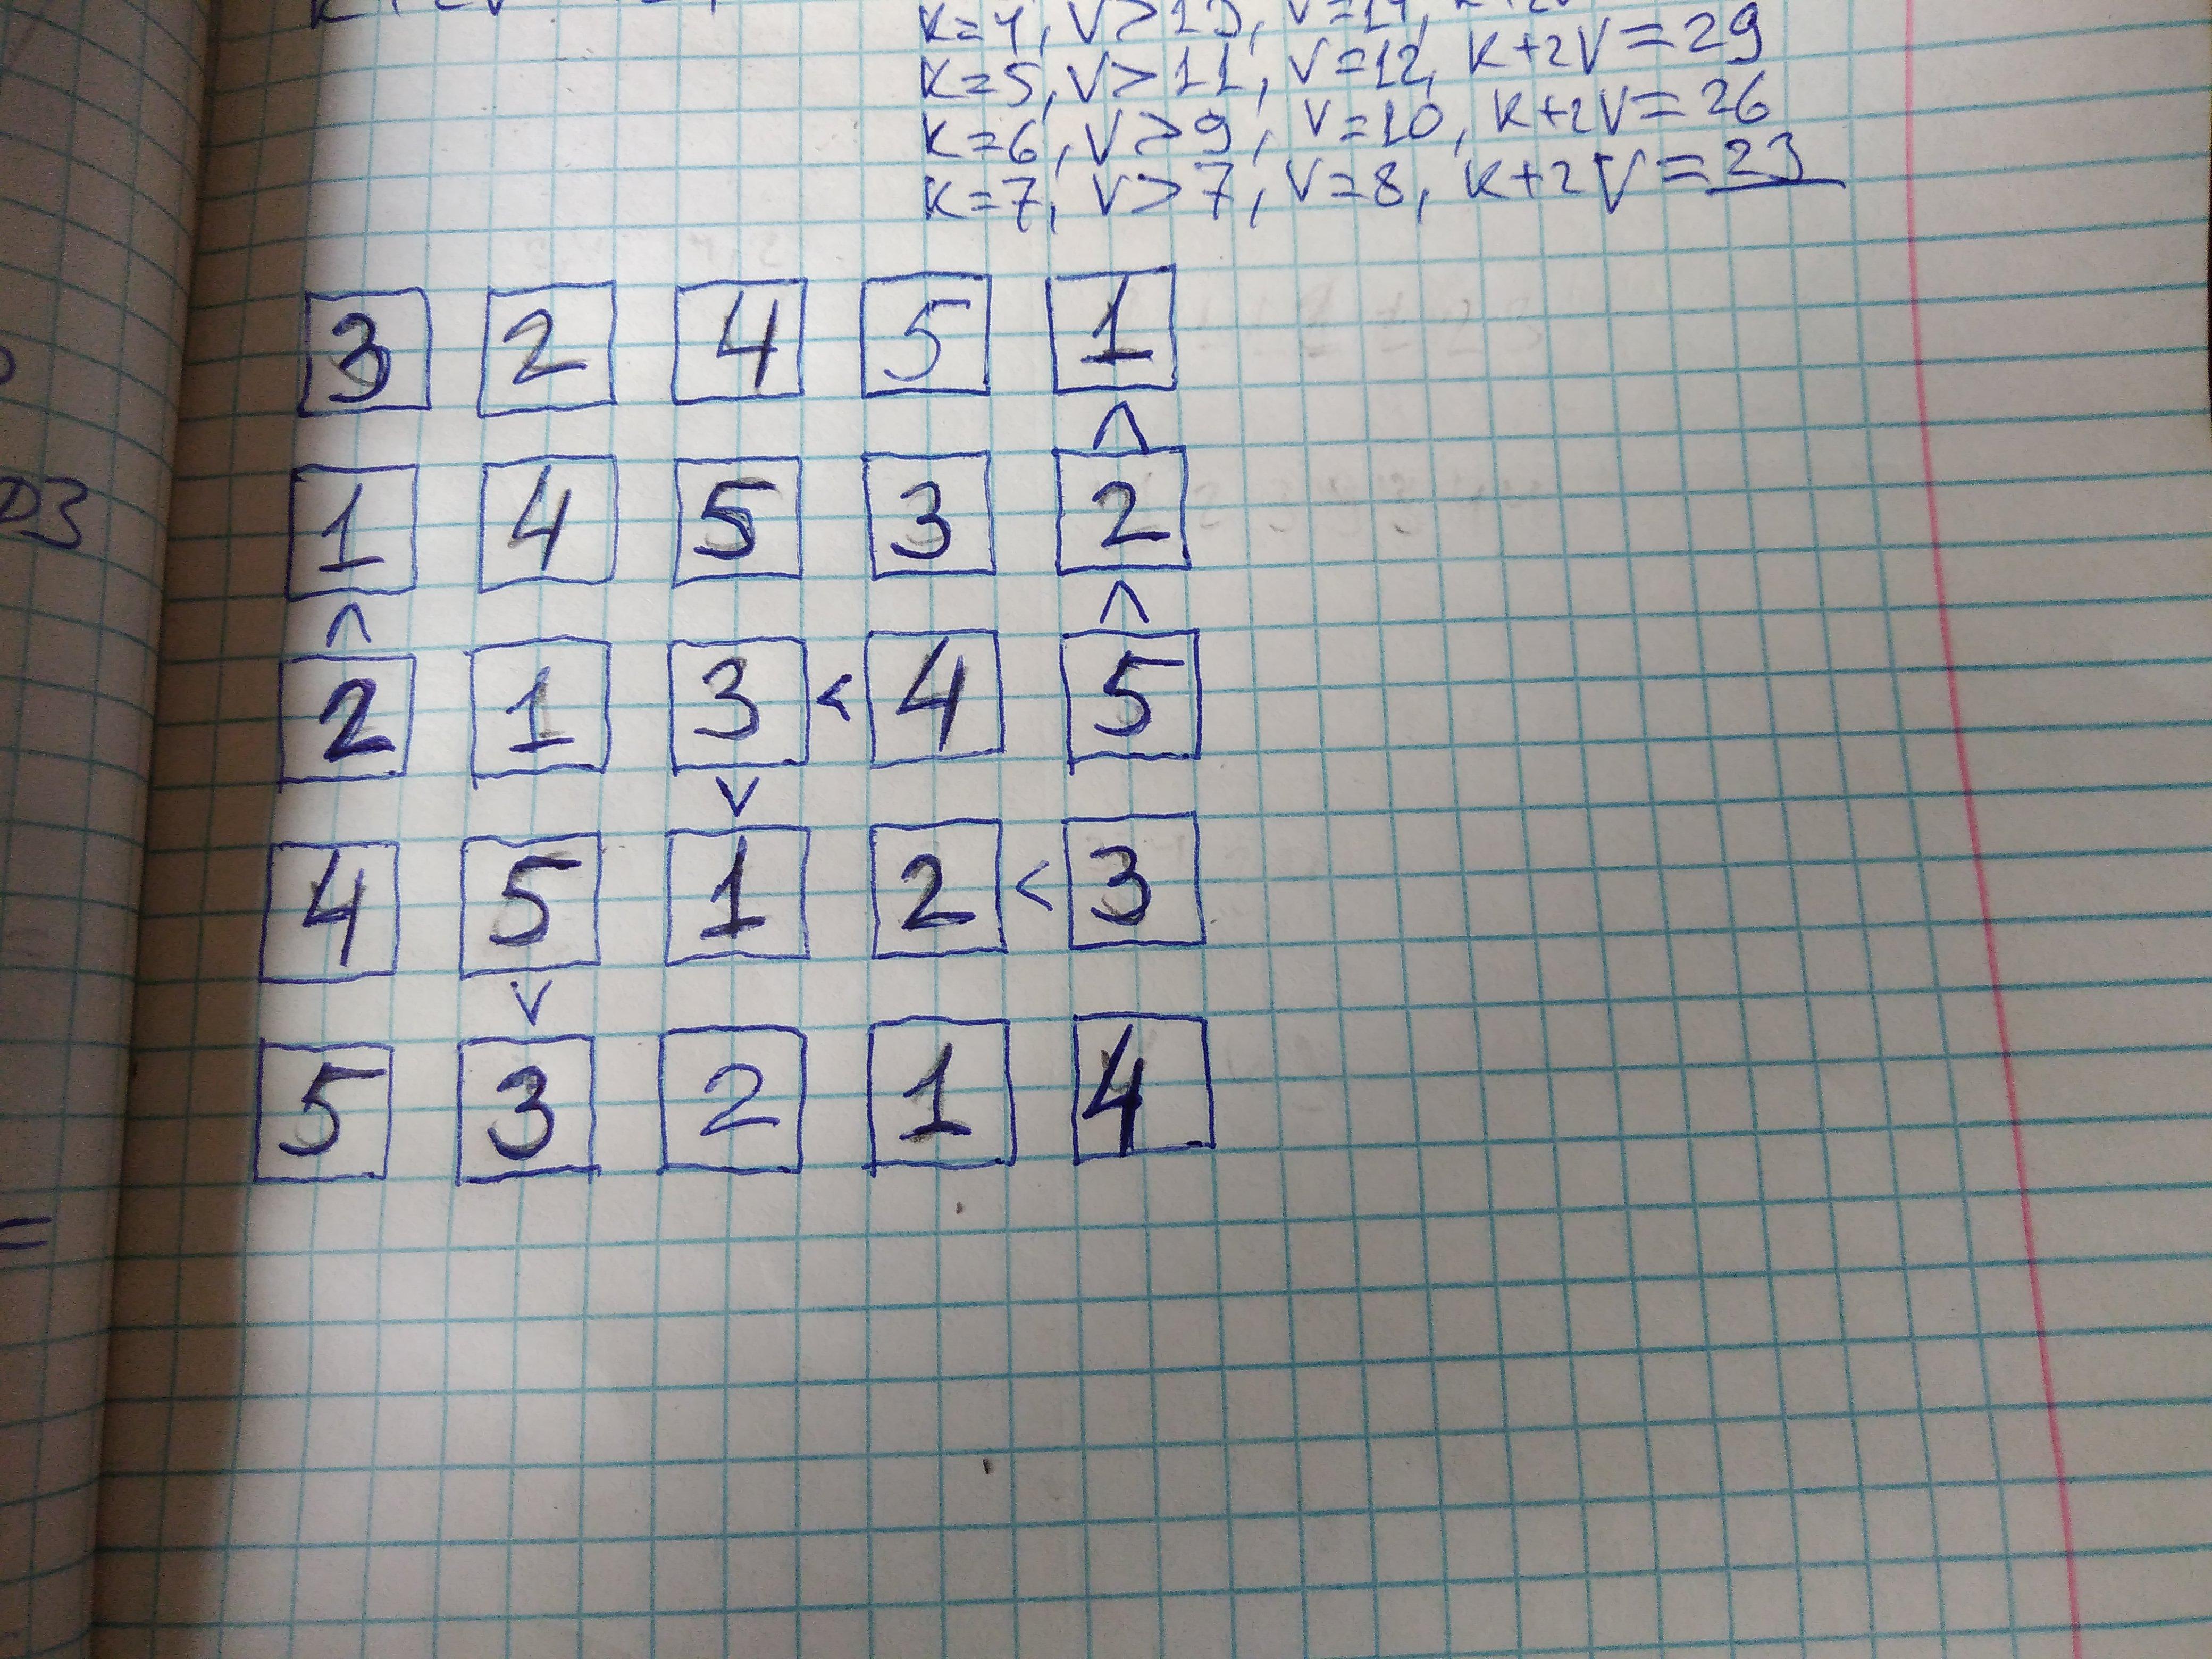 K=5, V>11, V=12, K+2V=29
K=6, V>9, V=10, K+2V=26
K=7, V>7, V=8, K+2V=23
3 2 4 5 1
^
1 4 5 3 2
^ ^
2 1 3 < 4 5
v
4 5 1 2 < 3
v
5 3 2 1 4
=